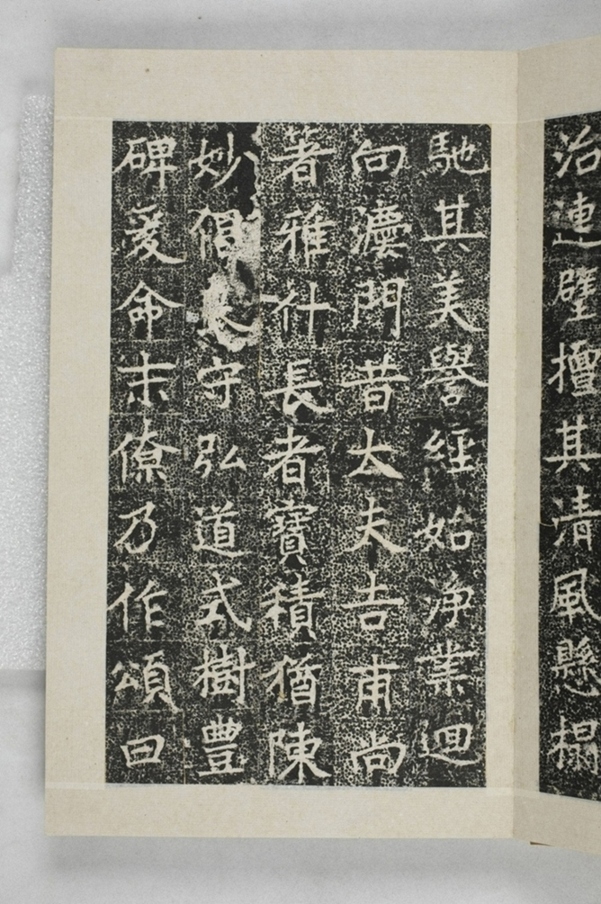 治連璧擅其清風懸榻
馳其美譽經始淨業迴
向灋門昔大夫吉甫尚
著雅什長者寶積猶陳
妙偈守弘道式樹豐
碑爰命末僚乃作頌曰